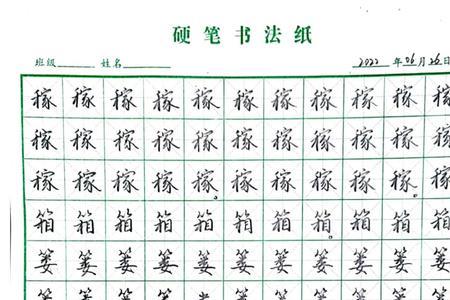 硬笔书法纸
班级 姓名 2022年06月26日
稼稼稼稼稼稼稼稼稼稼稼
稼稼稼稼稼稼稼稼稼稼稼
稼稼稼稼稼稼稼稼稼稼稼
箱箱箱箱箱箱箱箱箱箱箱
篓篓篓篓篓篓篓篓篓篓篓